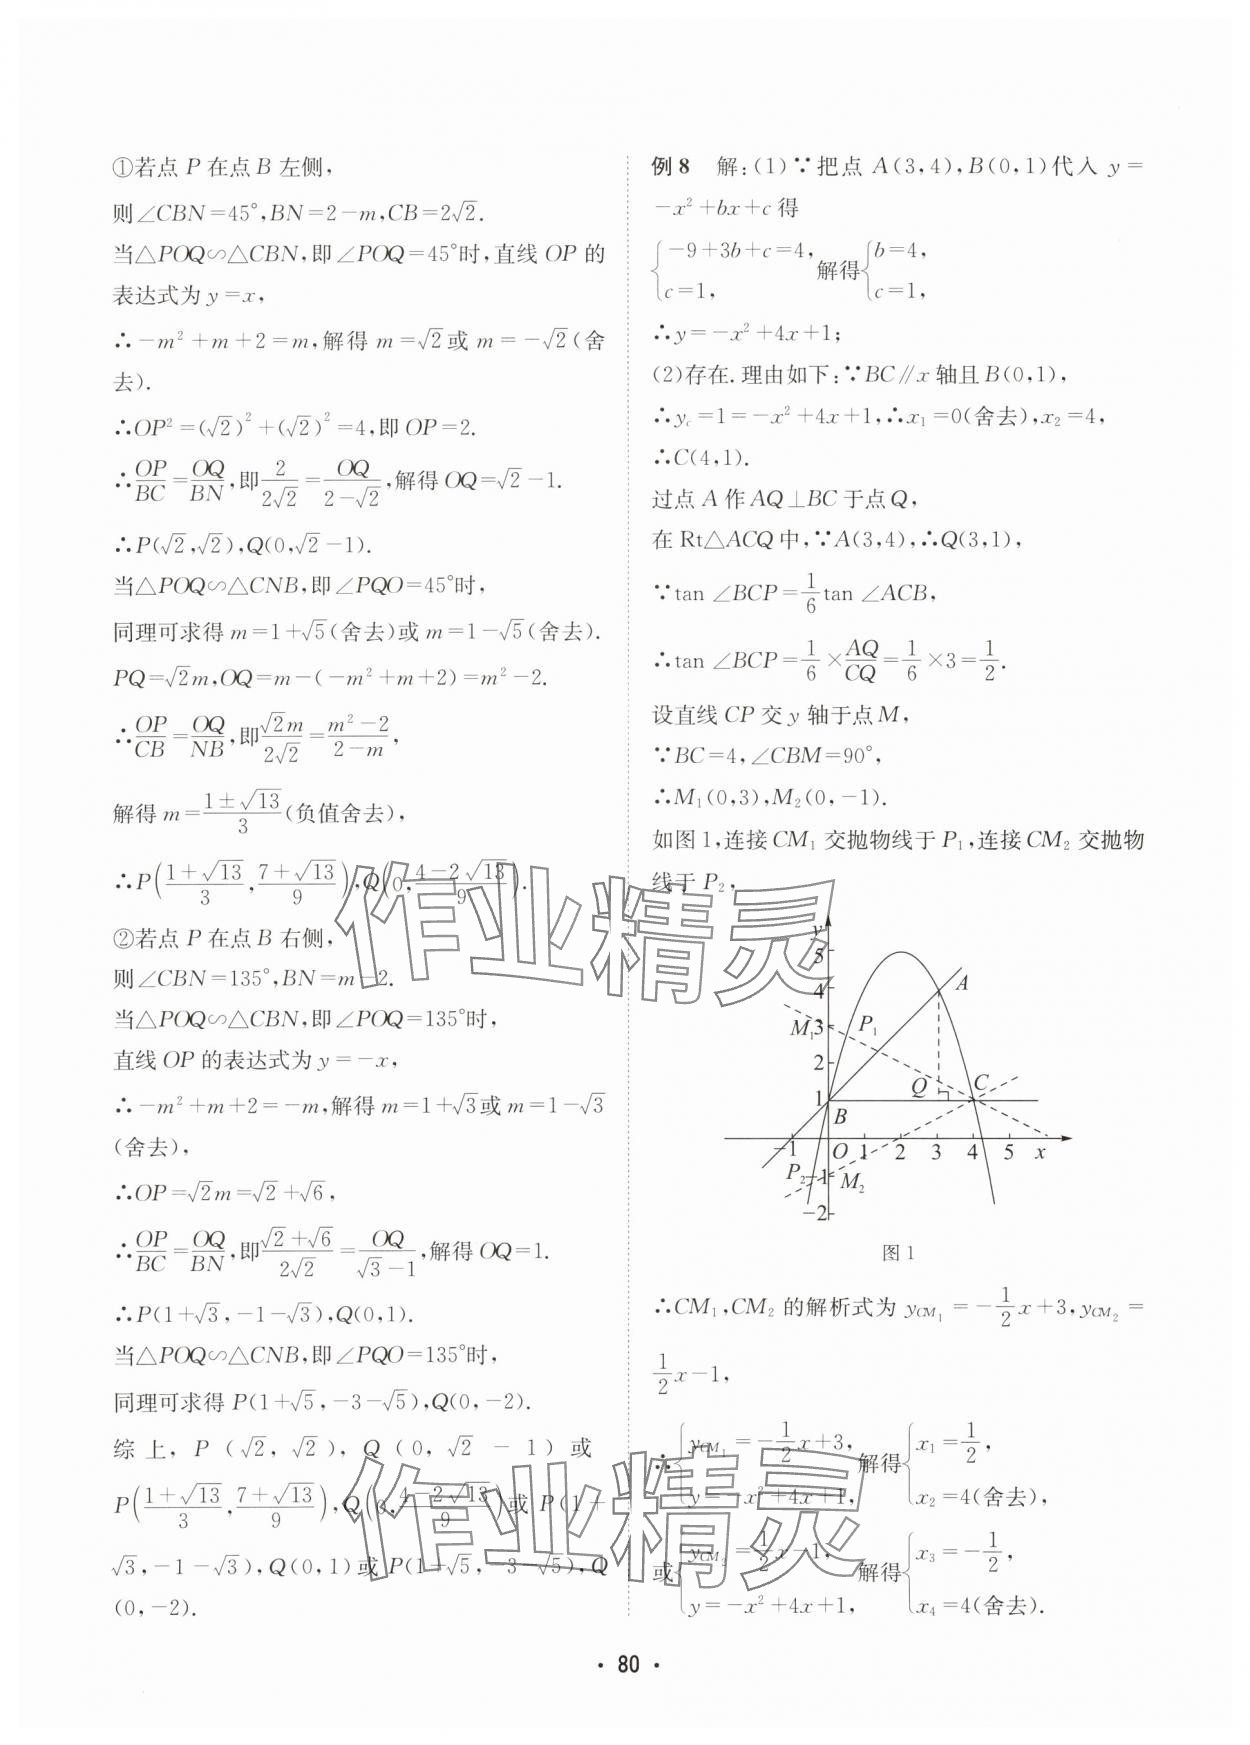 ①若点 P 在点 B 左侧,
则∠CBN=45°,BN=2-m,CB=2√2.
当△POQ∽△CBN,即∠POQ=45°时,直线 OP 的
表达式为 y=x,
∴-m²+m+2=m,解得 m=√2或 m=-√2(舍
去).
∴OP²=(√2)²+(√2)²=4,即 OP=2.
∴OP/BC=OQ/BN,即2/(2√2)=OQ/(2-√2),解得 OQ=√2-1.
∴P(√2,√2),Q(0,√2-1).
当△POQ∽△CNB,即∠PQO=45°时,
同理可求得 m=1+√5(舍去)或 m=1-√5(舍去).
PQ=√2m,OQ=m-(-m²+m+2)=m²-2.
∴OP/CB=OQ/NB,即(√2m)/(2√2)=(m²-2)/(2-m),
解得 m=(1±√13)/3(负值舍去),
∴P((1+√13)/3,(7+√13)/9),Q(0,(4-2√13)/9).
②若点 P 在点 B 右侧,
则∠CBN=135°,BN=m-2.
当△POQ∽△CBN,即∠POQ=135°时,
直线 OP 的表达式为 y=-x,
∴-m²+m+2=-m,解得 m=1+√3或 m=1-√3
(舍去),
∴OP=√2m=√2+√6,
∴OP/BC=OQ/BN,即(√2+√6)/(2√2)=OQ/(√3-1),解得 OQ=1.
∴P(1+√3,-1-√3),Q(0,1).
当△POQ∽△CNB,即∠PQO=135°时,
同理可求得 P(1+√5,-3-√5),Q(0,-2).
综上,P(√2,√2),Q(0,√2-1)或
P((1+√13)/3,(7+√13)/9),Q(0,(4-2√13)/9)或 P(1+
√3,-1-√3),Q(0,1)或 P(1+√5,-3-√5),Q
(0,-2).
例 8 解:(1)∵把点 A(3,4),B(0,1)代入 y=
-x²+bx+c 得
{-9+3b+c=4, c=1, 解得{b=4, c=1,
∴y=-x²+4x+1;
(2)存在.理由如下:∵BC∥x 轴且 B(0,1),
∴y_c=1=-x²+4x+1,∴x₁=0(舍去),x₂=4,
∴C(4,1).
过点 A 作 AQ⊥BC 于点 Q,
在 Rt△ACQ 中,∵A(3,4),∴Q(3,1),
∵tan ∠BCP=1/6 tan ∠ACB,
∴tan ∠BCP=1/6×AQ/CQ=1/6×3=1/2.
设直线 CP 交 y 轴于点 M,
∵BC=4,∠CBM=90°,
∴M₁(0,3),M₂(0,-1).
如图 1,连接 CM₁ 交抛物线于 P₁,连接 CM₂ 交抛物
线于 P₂,
y
5
4 A
M₁ 3 P₁
2
1 Q C
B
-1 O 1 2 3 4 5 x
P₂ -1 M₂
-2
图 1
∴CM₁,CM₂ 的解析式为 y_CM₁=-1/2x+3,y_CM₂=
1/2x-1,
∴{y_CM₁=-1/2x+3, y=-x²+4x+1, 解得{x₁=1/2, x₂=4(舍去),
或{y_CM₂=1/2x-1, y=-x²+4x+1, 解得{x₃=-1/2, x₄=4(舍去).
作业精灵
作业精灵
· 80 ·